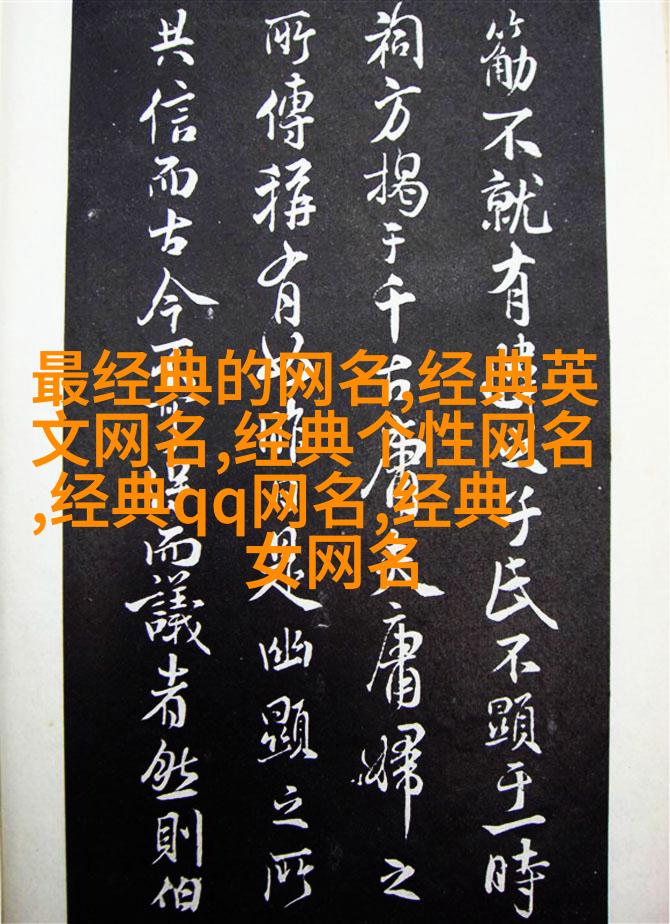 最经典的网名,经典英
文网名,经典个性网名
,经典qq网名,经典
女网名
不就有乎氏不顯于一時
祠方揭于千古庸夫庸婦之
所傳稱有是幽顯之所
共信而古今而議者然則伯